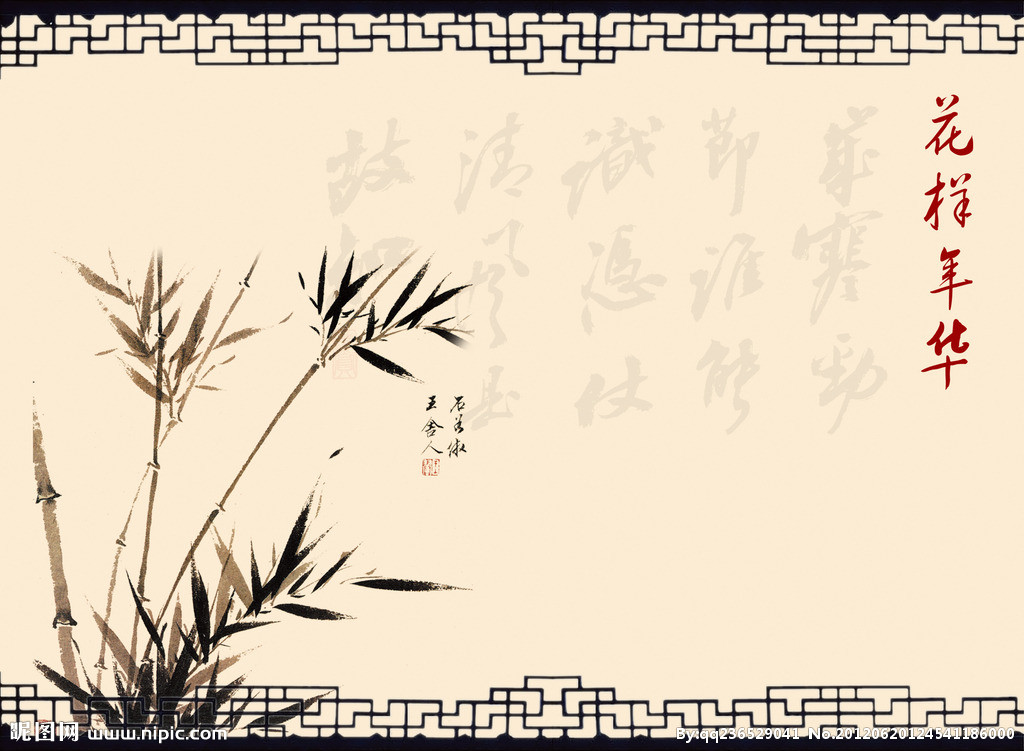 花样年华
歲寒勁
節誰能
識憑仗
清風
故
王舍人
昵图网 www.nipic.com
By:qq236529041 No.20120620124541186000